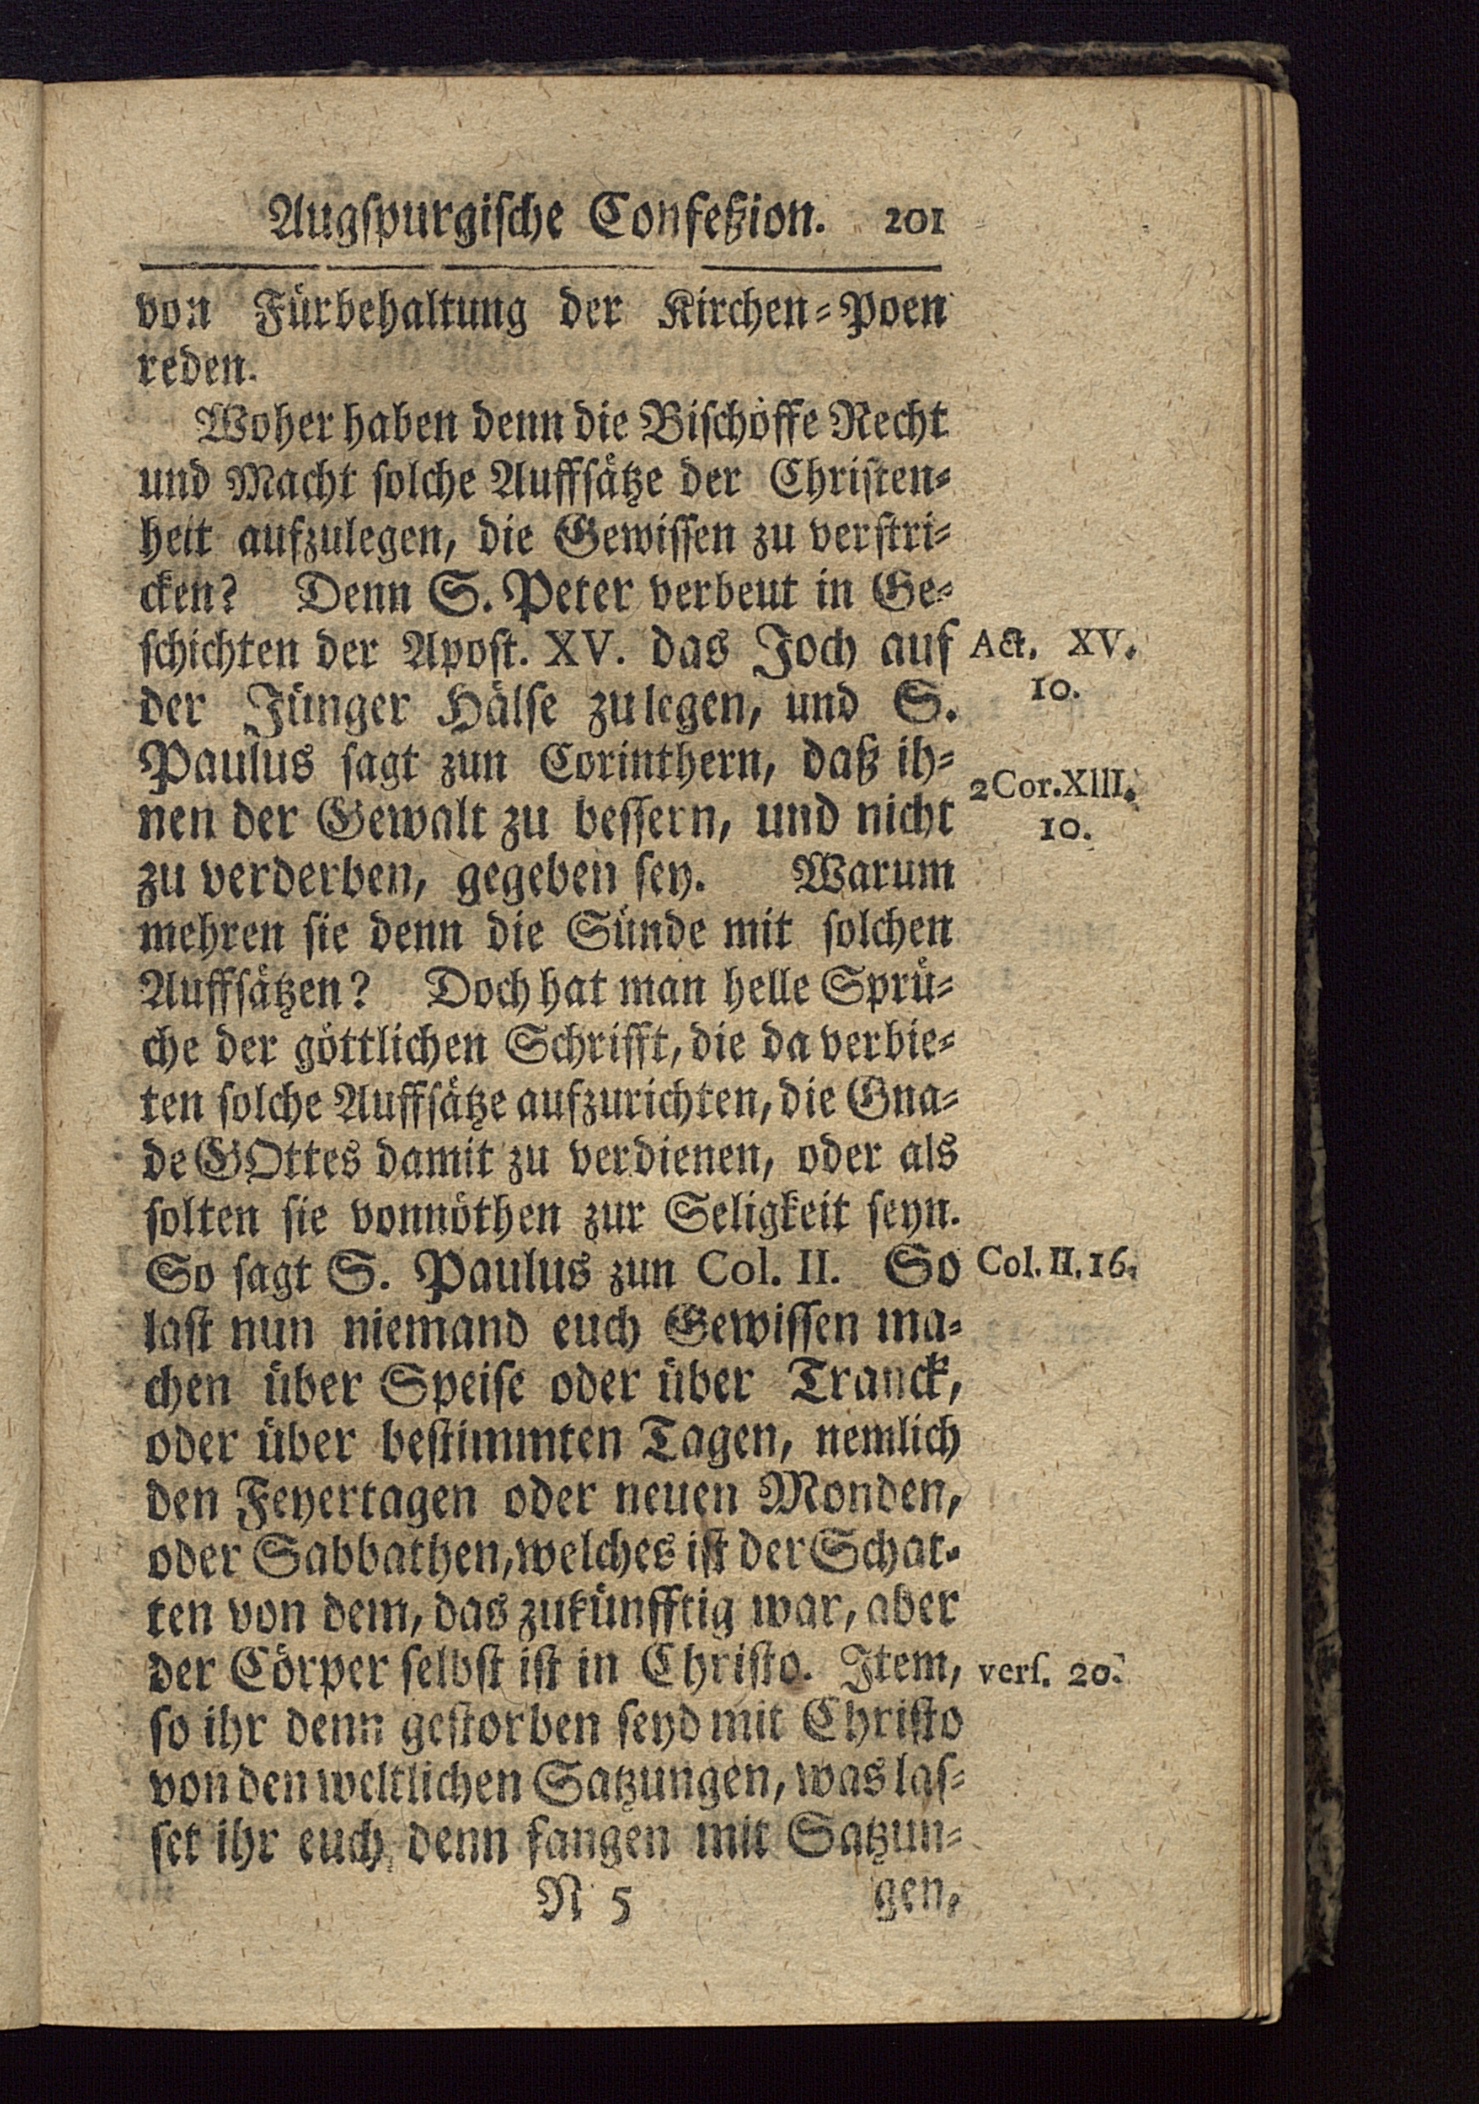 Augspurgische Confeßion. 201
von Fürbehaltung der Kirchen-Poen
reden.
Woher haben denn die Bischöffe Recht
und Macht solche Auffsätze der Christen-
heit aufzulegen, die Gewissen zu verstri-
cken? Denn S. Peter verbeut in Ge-
schichten der Apost. XV. das Joch auf
Act. XV.
10.
der Jünger Hälse zu legen, und S.
Paulus sagt zun Corinthern, daß ih-
2 Cor. XIII.
10.
nen der Gewalt zu bessern, und nicht
zu verderben, gegeben sey. Warum
mehren sie denn die Sünde mit solchen
Auffsätzen? Doch hat man helle Sprü-
che der göttlichen Schrifft, die da verbie-
ten solche Auffsätze aufzurichten, die Gna-
de GOttes damit zu verdienen, oder als
solten sie vonnöthen zur Seligkeit seyn.
So sagt S. Paulus zun Col. II. So
Col. II. 16.
last nun niemand euch Gewissen ma-
chen über Speise oder über Tranck,
oder über bestimmten Tagen, nemlich
den Feyertagen oder neuen Monden,
oder Sabbathen, welches ist der Schat-
ten von dem, das zukünfftig war, aber
der Cörper selbst ist in Christo. Item,
vers. 20.
so ihr denn gestorben seyd mit Christo
von den weltlichen Satzungen, was las-
set ihr euch denn fangen mit Satzun-
N 5 gen,